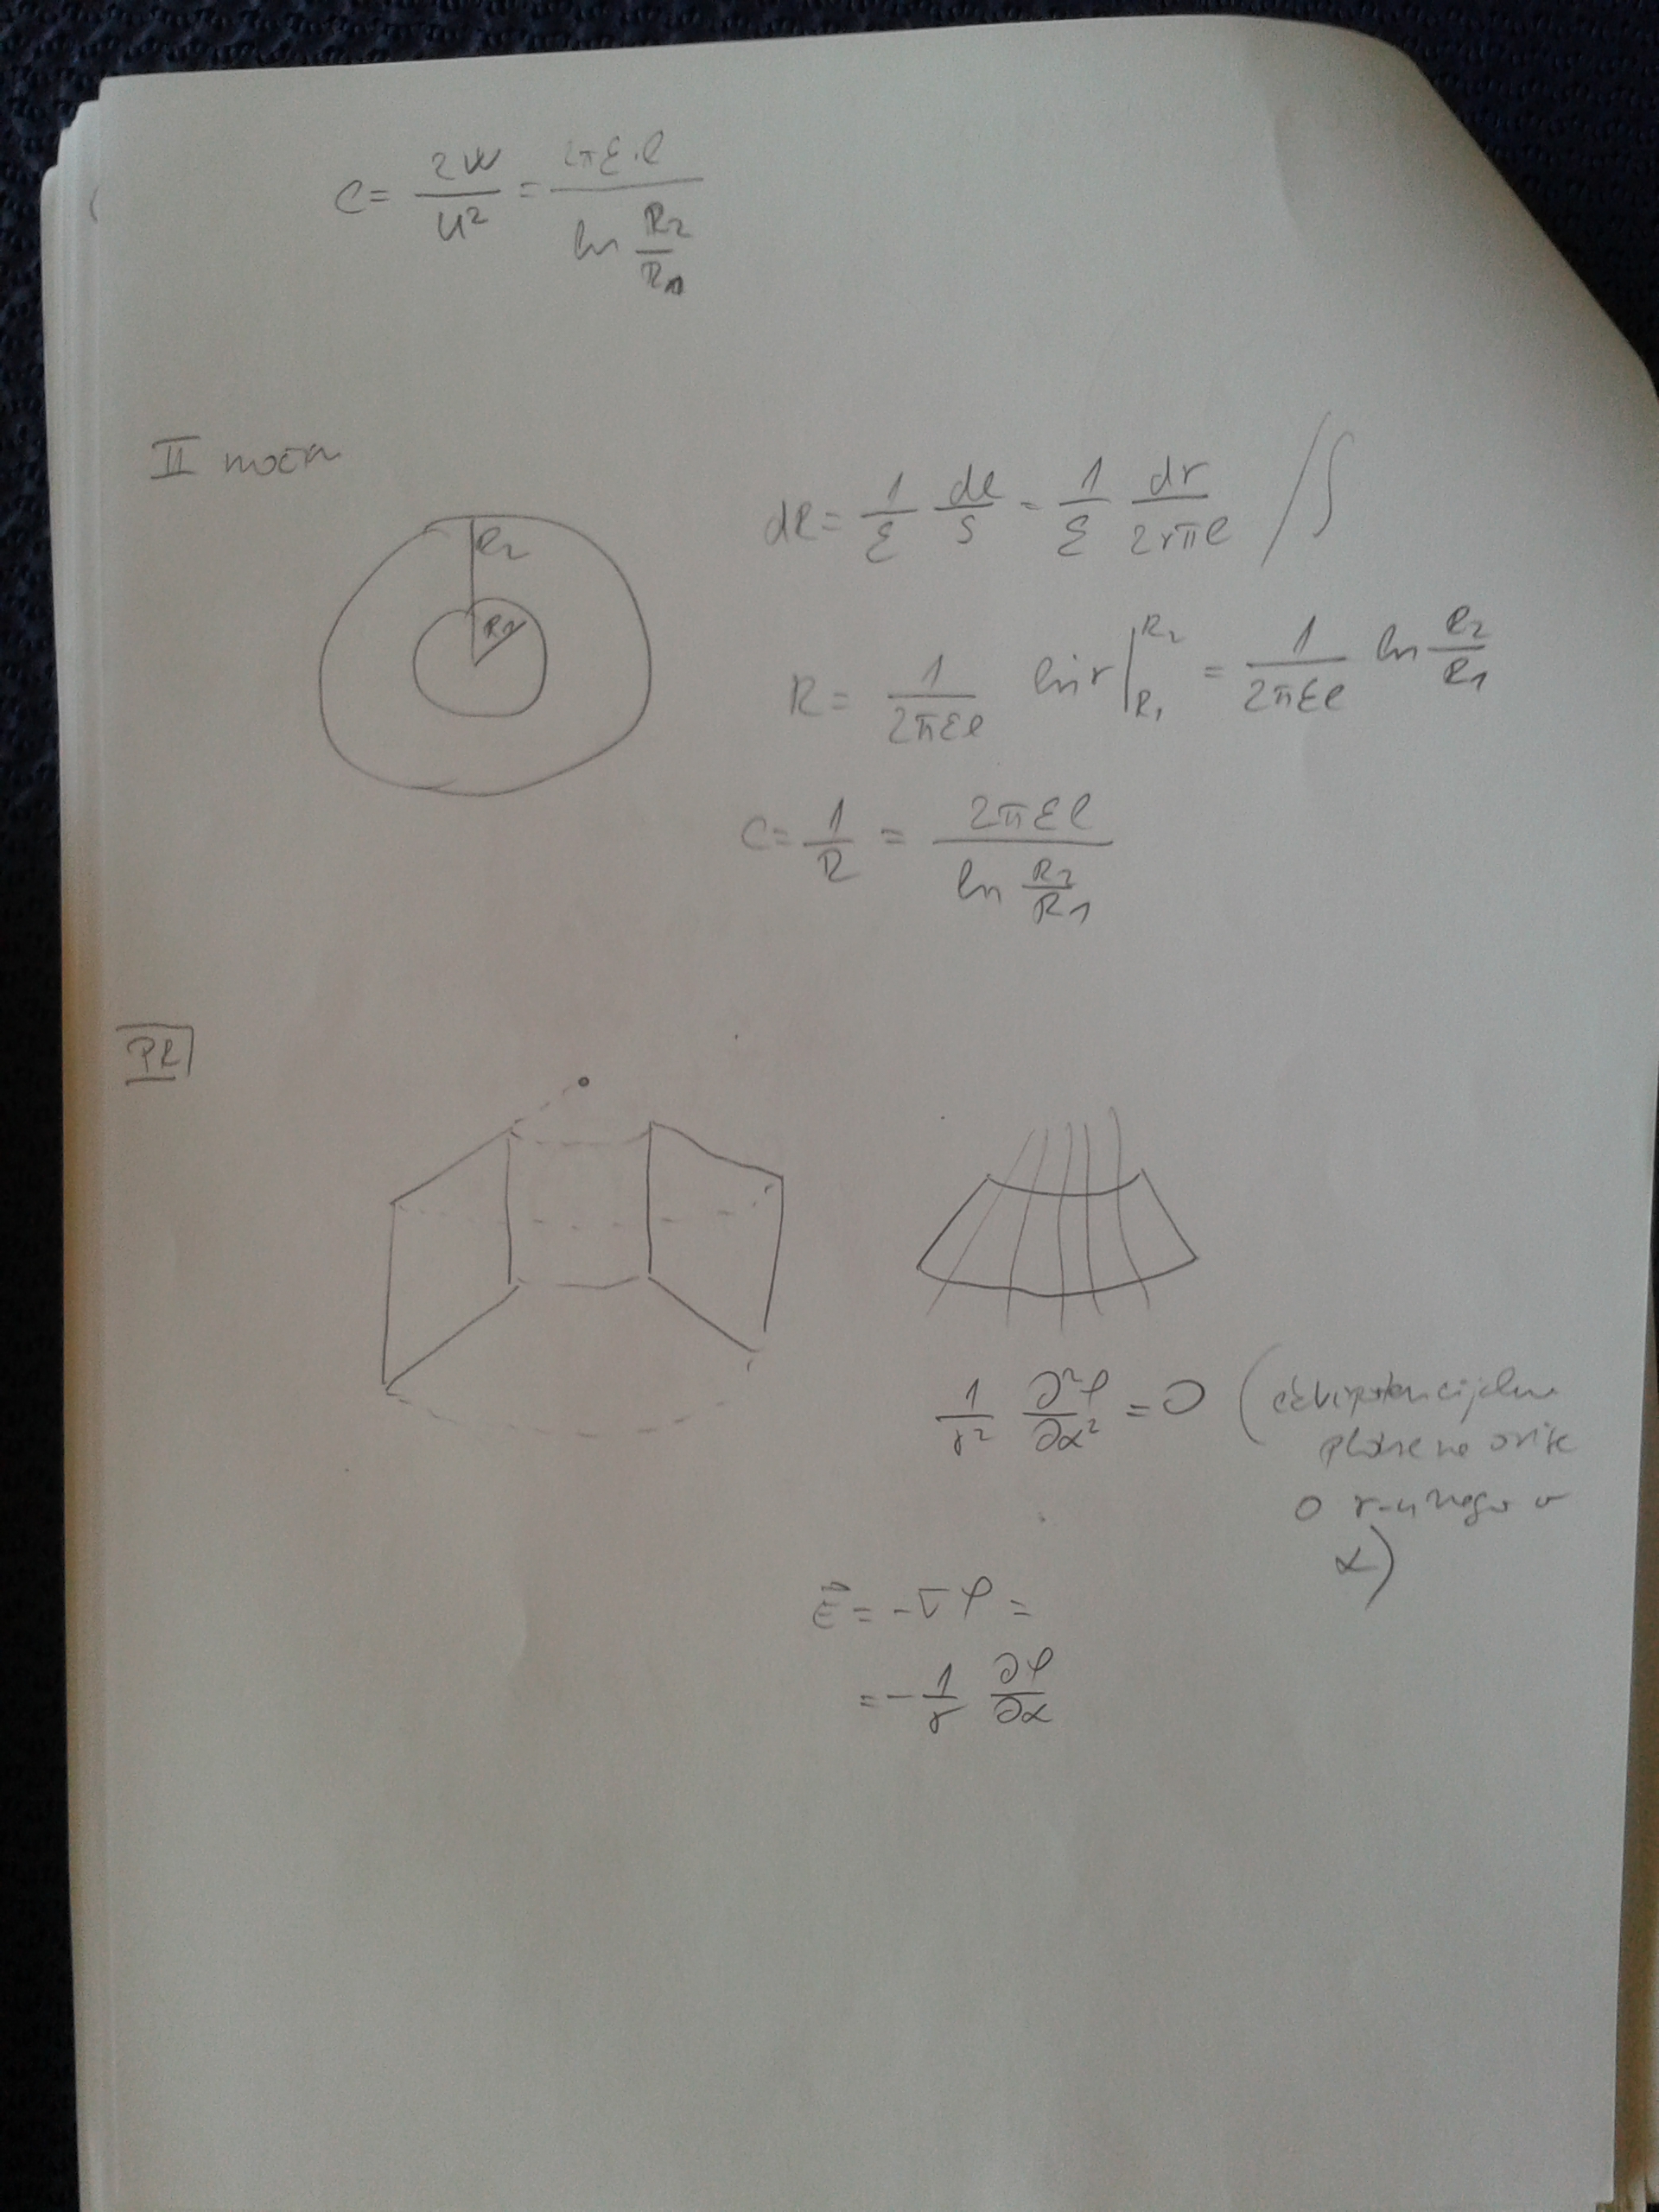 C = 2W/U² = 2πε·l / ln R₂/R₁
II način
R₂
R₁
dR = 1/ε dl/S = 1/ε dr/2rπl /∫
R = 1/2πεl ln r |R₁ R₂ = 1/2πεl ln R₂/R₁
C = 1/R = 2πεl / ln R₂/R₁
PR
1/r² ∂²φ/∂α² = 0 (ekvipotencijalne
plohe ne ovise
o r - u nego o
α)
E⃗ = -∇φ =
= -1/r ∂φ/∂α